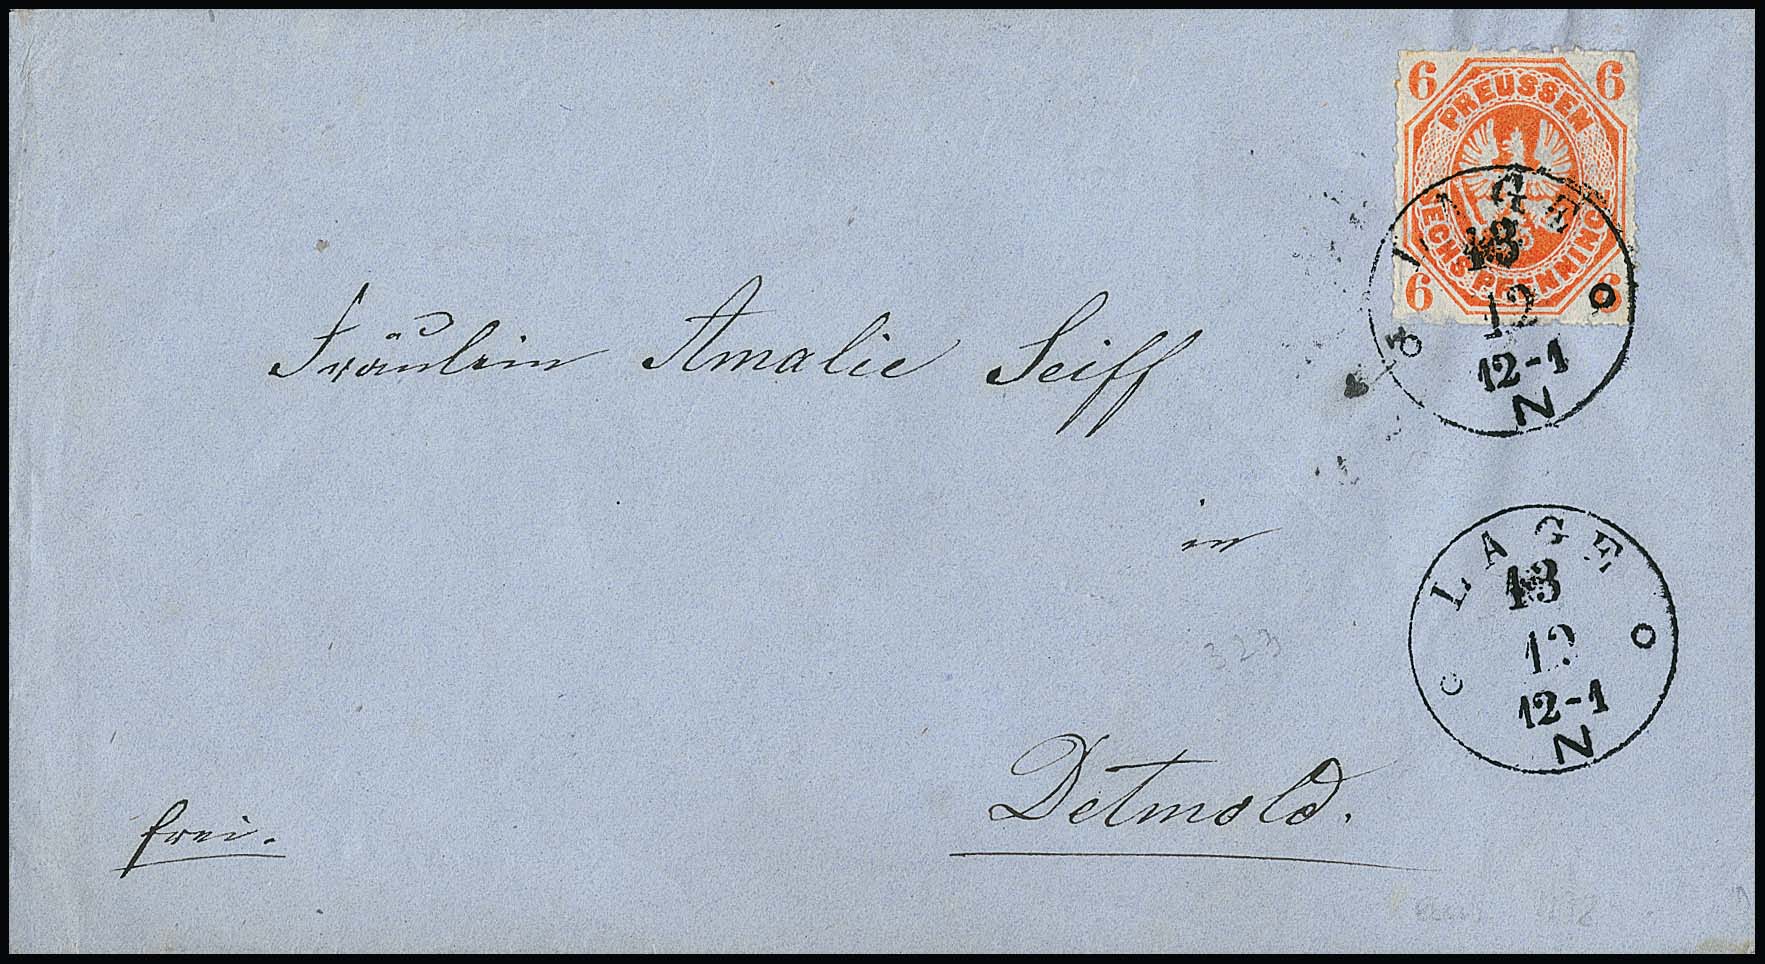 6 6
PREUSSEN
SECHS PFENNINGE
6 6
LAGE
13
12
12-1
N
Fräulein Amalie Seiff
in
LAGE
13
12
12-1
N
323
Detmold.
frei.